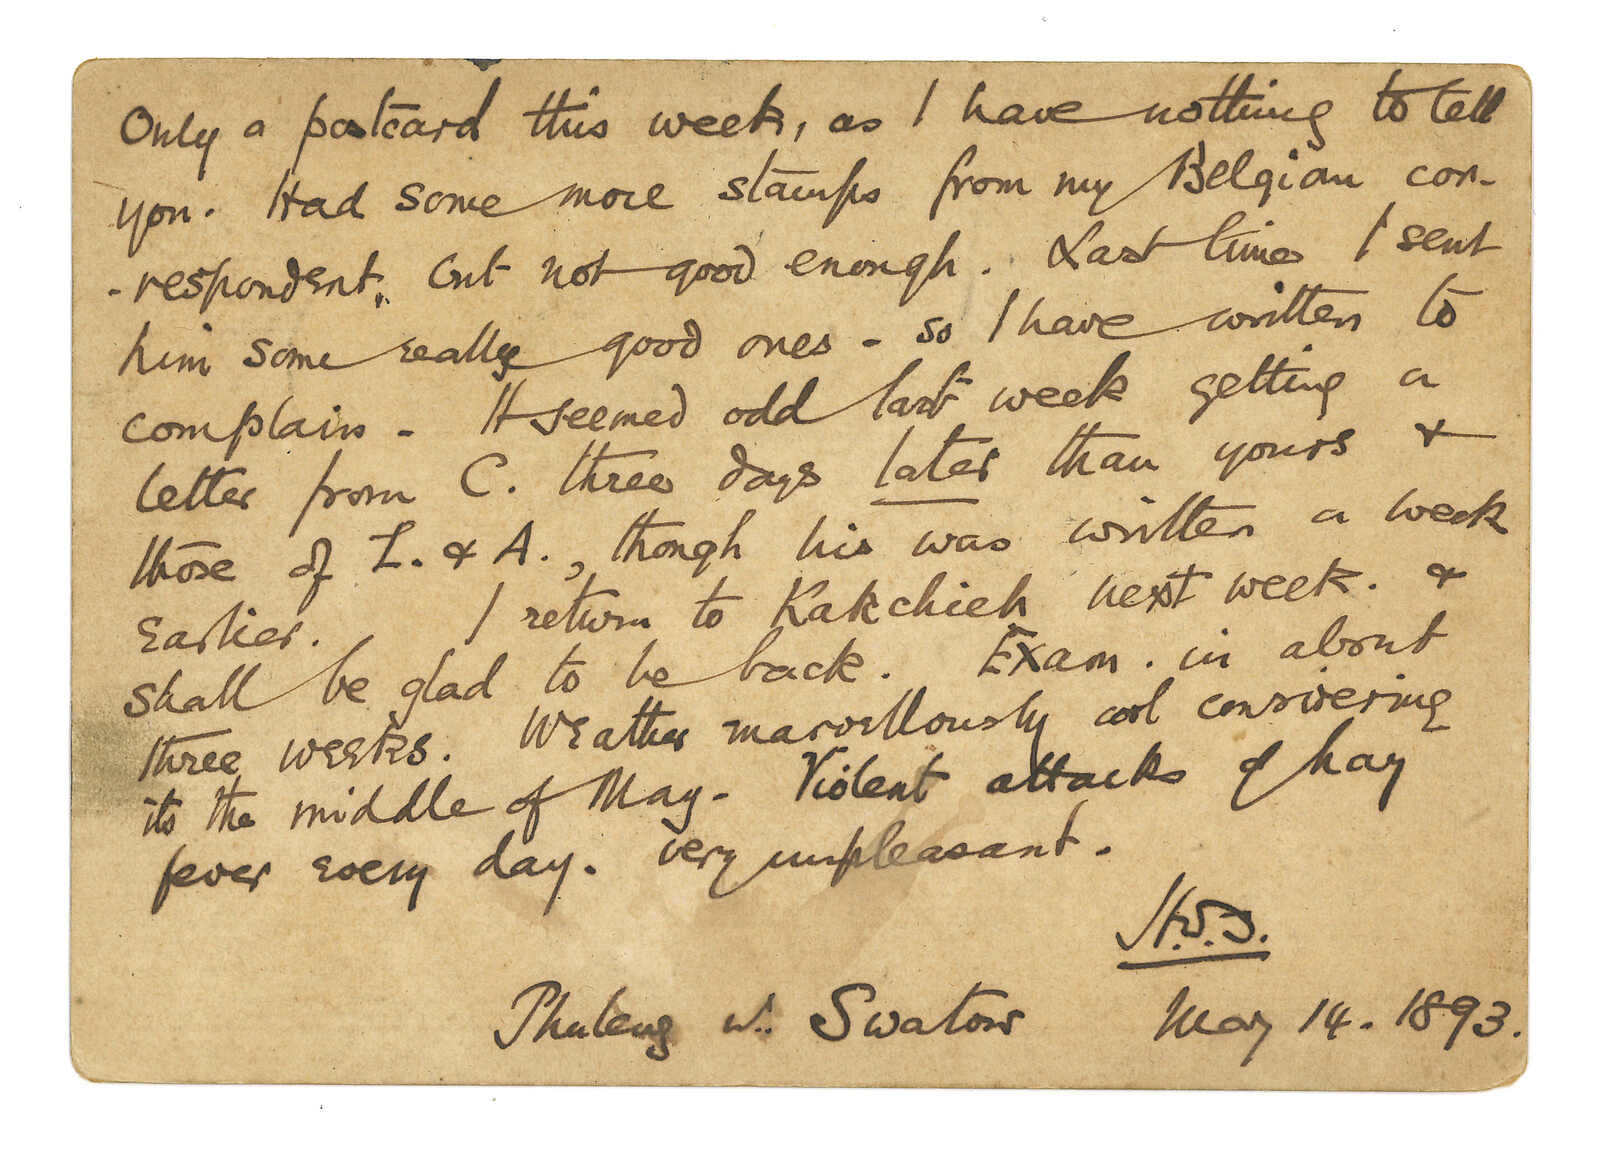 Only a postcard this week, as I have nothing to tell
you. Had some more stamps from my Belgian cor-
-respondent, but not good enough. Last time I sent
him some really good ones - so I have written to
complain - It seemed odd last week getting a
letter from C. three days later than yours &
those of L. & A., though his was written a week
earlier. I return to Kakchieh next week. &
shall be glad to be back. Exam. in about
three weeks. Weather marvellously cool considering
its the middle of May - Violent attacks of hay
fever every day. Very unpleasant.
Phuleng Swatow May 14. 1893.